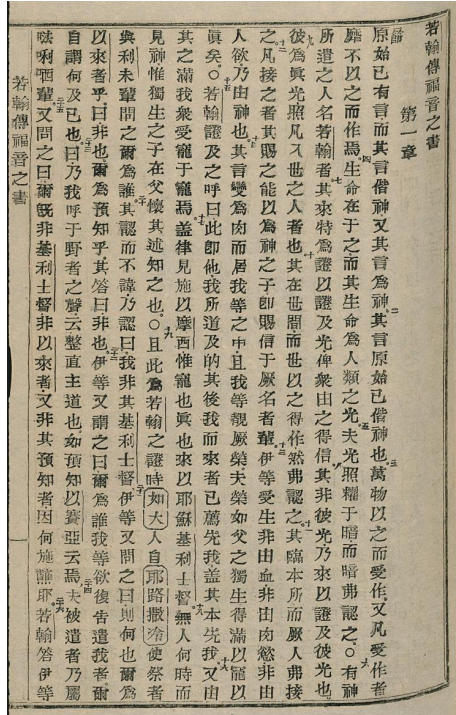 若翰傳福音之書
第一章
原始已有言而其言偕神又其言爲神。其言原始已偕神也。萬物以之而受作。又凡受作者
靡不以之而作焉。生命在于之。而其生命爲人類之光。夫光照耀于暗。而暗弗認之。○有神
所遣之人名若翰者。其來特爲證以證及光俾衆由之得信。其非彼光乃來以證及彼光也。
彼爲眞光照凡入世之人者也。其在世間而世以之得作然弗認之。其臨本所而厥人弗接
之。凡接之者其賜之能以爲神之子卽賜信于厥名者輩。伊等受生非由血非由肉慾非由
人欲乃由神也。其言變爲肉而居我等之中且我等覩厥榮夫榮如父之獨生得滿以寵以
眞矣。○若翰證及之呼曰此卽他我所道及的其後我而來者已薦先我蓋其本先我。又由
其之滿我衆受寵于寵焉。蓋律見施以摩西惟寵也眞也來以耶穌基利士督。無人何時而
見神惟獨生之子在父懷其述知之也。○且此爲若翰之證時如大人自耶路撒冷使祭者
與利未輩問之爾爲誰。其認而不諱乃認曰。我非其基利士督伊等又問之曰則何也爾爲
以來者乎。曰非也爾爲預知乎。其答曰非也。伊等又謂之曰爾爲誰我等欲復告遣我者爾
自謂何及己也。曰乃我呼于野者之聲云整直主道也。如預知以賽亞云焉。夫被遣者乃屬
唎哂輩。又問之曰爾旣非基利士督非以來者。又非其預知者。因何施蘸耶。若翰答伊等
若翰傳福音之書